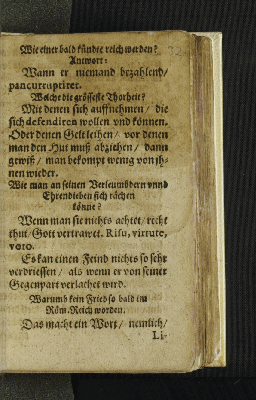 Wie einer bald kündte reich werden?
Antwort:
Wann er niemand bezahlend/
pancurruptiret.
Welche die grösseste Thorheit?
Mit denen sich auffnehmen / die
sich defendiren wollen vnd können.
Oder denen Gelt leihen / vor denen
man den Hut muß abziehen / dann
gewiß / man bekompt wenig von ih-
nen wieder.
Wie man an seinen Verleumbdern vnnd
Ehrendieben sich rächen
könne?
Wenn man sie nichts achtet / recht
thut / Gott vertrawet. Risu, virtute,
voto.
Es kan einen Feind nichts so sehr
verdriessen / als wenn er von seiner
Gegenpart verlachet wird.
Warumb kein Fried so bald im
Röm. Reich worden.
Das macht ein Wort / nemlich /
Li-